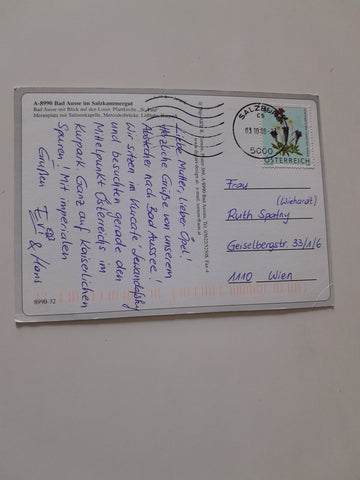 A-8990 Bad Aussee im Salzkammergut
Bad Aussee mit Blick auf den Loser, Pfarrkirche „St. Paul“
Meranplatz mit Salinenkapelle, Mercedesbrücke,
Liebe Mutter, Lieber Opel!
Herzliche Grüße von unserem
nach Bad Aussee..!
Wir sitzen im Kurcafe Lewandofsky
und besuchten gerade den
Mittelpunkt Österreichs im
Kurpark. Ganz auf kaiserlichen
Spuren. Mit imperialen
Grüßen Evi & Hans
8990-32
SALZBURG
03 10 08
5000
ÖSTERREICH
Frau
(Wiehardt)
Ruth Spatny
Geiselbergstr. 33/1/6
1110 Wien